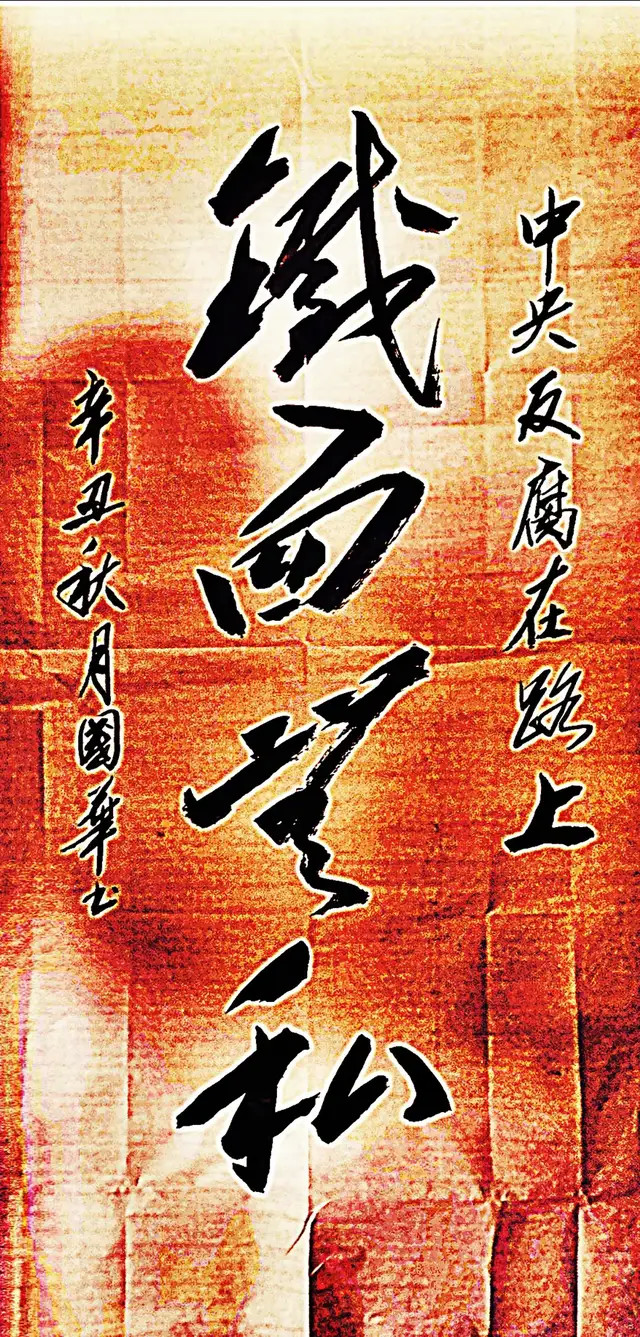 中央反腐在路上
鐵面無私
辛丑秋月國華书